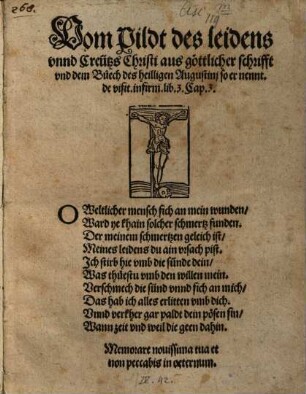 268.
Asc. III
119
Vom Pildt des leidens
vnnd Creütz Christi aus göttlicher schrifft
vnd dem Büech des heilligen Augustinj so er nennt.
de visit. infirm. lib. 3. Cap. 3.
O Weltlicher mensch sich an mein wunden/
Ward ye khain solcher schmertz funden.
Der meinem schmertzen geleich ist/
Meines leidens du ain vrsach pist.
Ich stirb hie vmb die sünde dein/
Was thüestu vmb den willen mein.
Verschmech die sünd vnnd sich an mich/
Das hab ich alles erlitten vmb dich.
Vnnd verkher gar paldt dein pösen sin/
Wann zeit vnd weil die geen dahin.
Memorare nouissima tua et
non peccabis in æternum.
IV. 92.